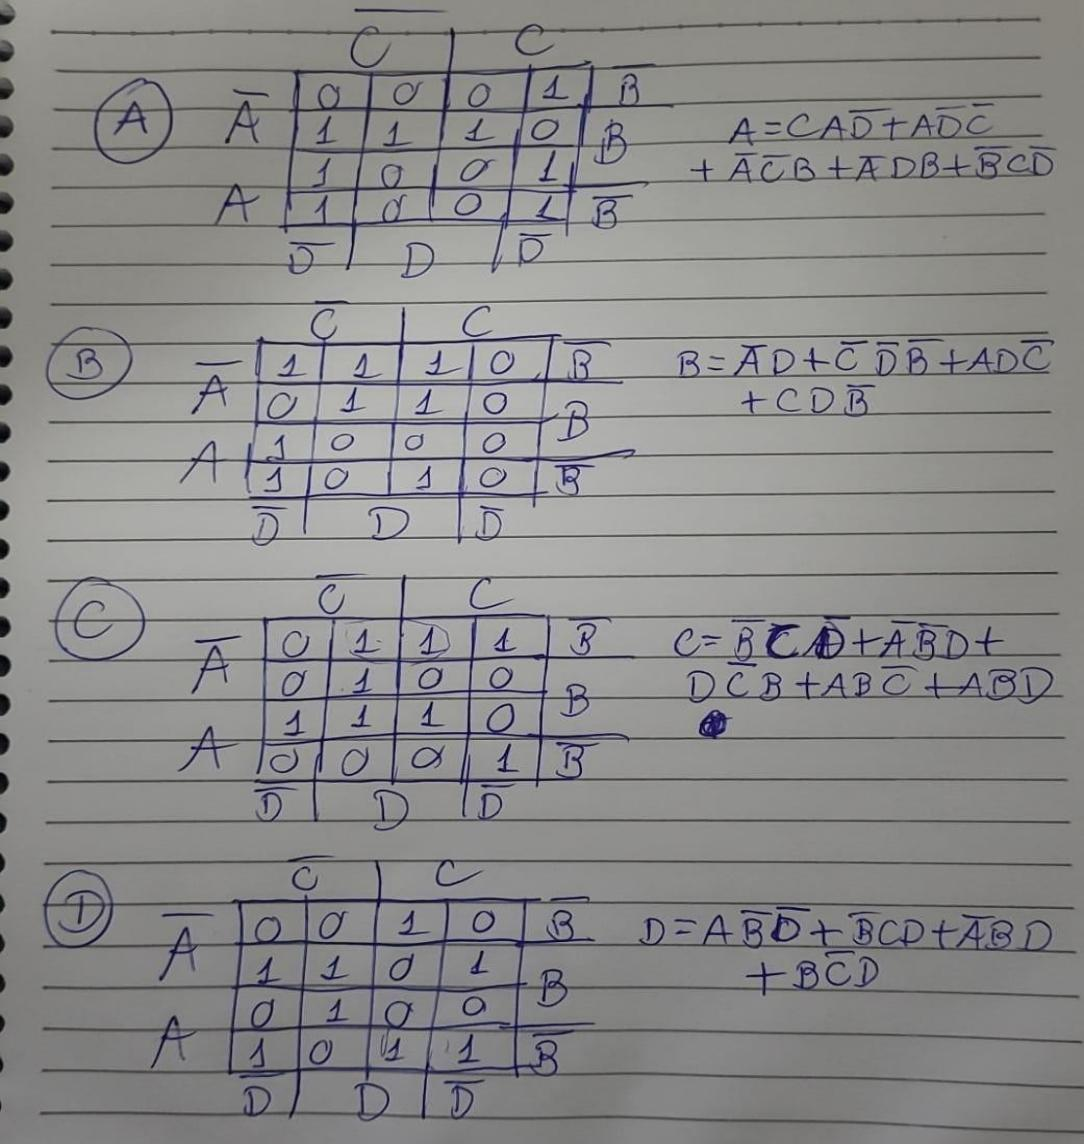 C̅ C
A
A̅ 0 0 0 1 B̅
1 1 1 0 B
1 0 0 1
A 1 0 0 1 B̅
D̅ D D̅
A=CAD̅+AD̅C̅
+A̅C̅B+A̅DB+B̅CD̅
C̅ C
B
A̅ 1 1 1 0 B̅
0 1 1 0 B
A 1 0 0 0
1 0 1 0 B̅
D̅ D D̅
B=A̅D+C̅D̅B̅+AD̅C̅
+CDB̅
C̅ C
C
A̅ 0 1 1 1 B̅
0 1 0 0 B
1 1 1 0
A 0 0 0 1 B̅
D̅ D D̅
C=B̅CD̅+A̅B̅D+
DC̅B+ABC̅+ABD
C̅ C
D
A̅ 0 0 1 0 B̅
1 1 0 1 B
0 1 0 0
A 1 0 1 1 B̅
D̅ D D̅
D=AB̅D̅+B̅CD+A̅BD̅
+BC̅D